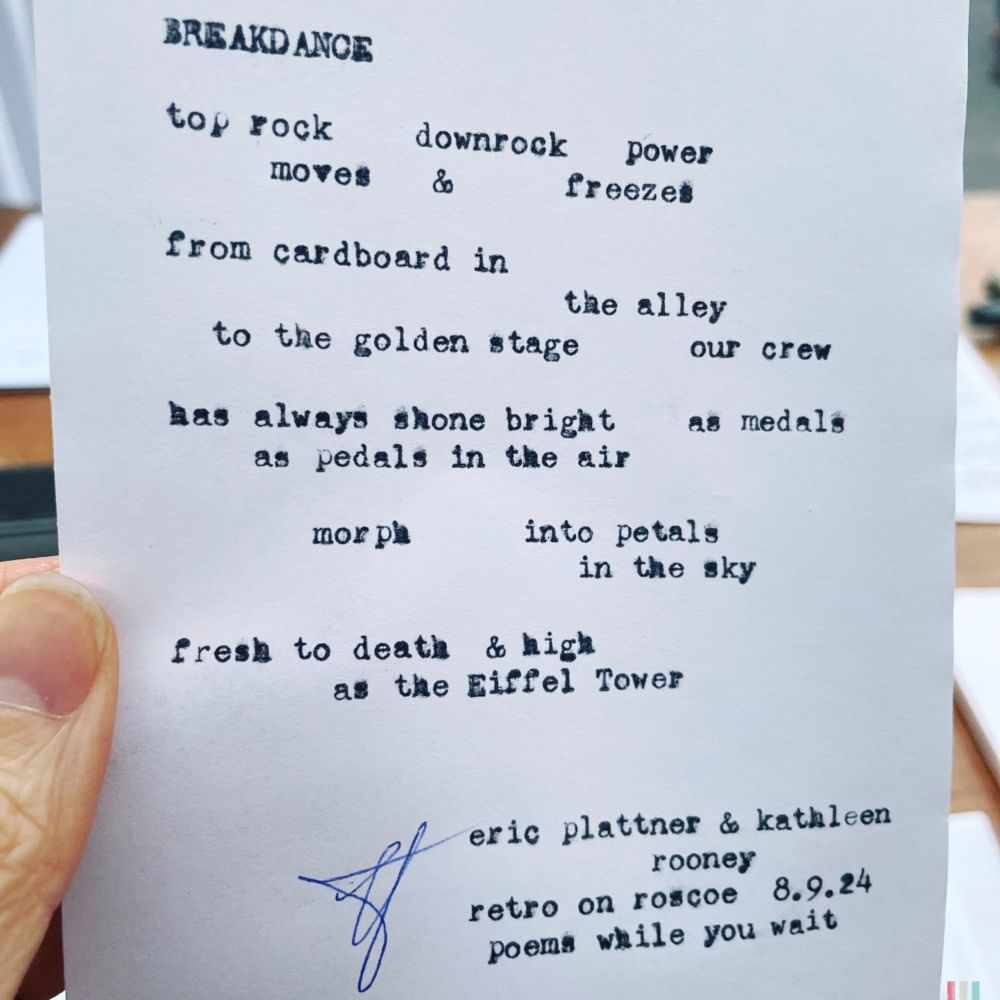 BREAKDANCE
top rock downrock power
moves & freezes
from cardboard in
the alley
to the golden stage our crew
has always shone bright as medals
as pedals in the air
morph into petals
in the sky
fresh to death & high
as the Eiffel Tower
eric plattner & kathleen
rooney
retro on roscoe 8.9.24
poems while you wait